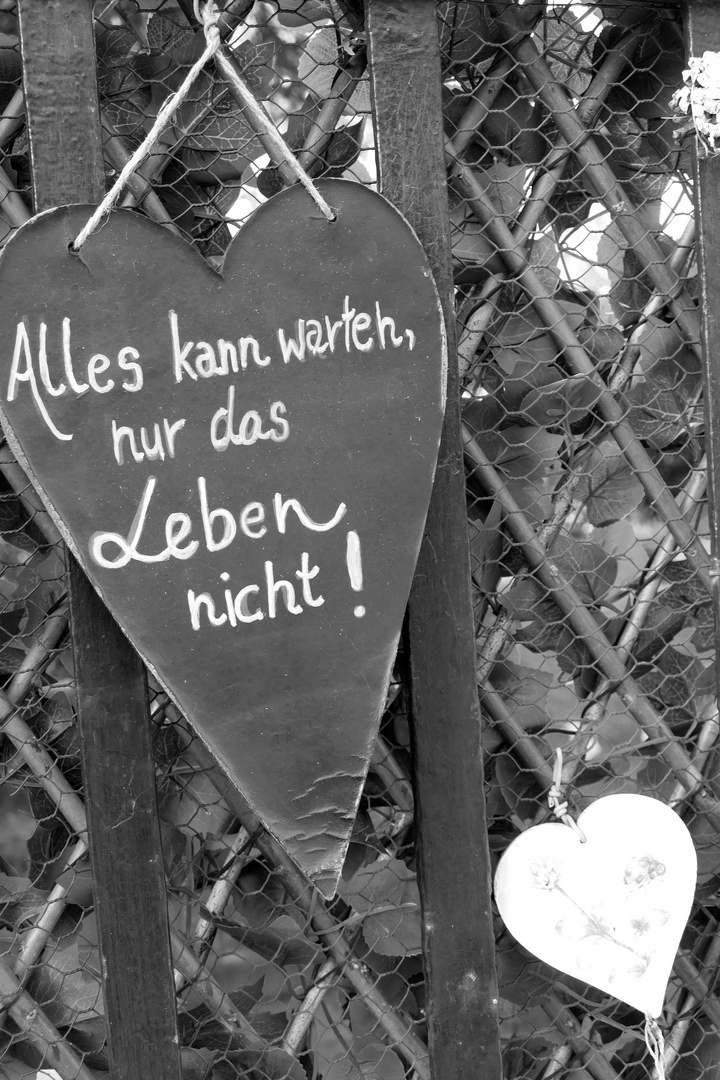 Alles kann warten,
nur das
Leben
nicht!